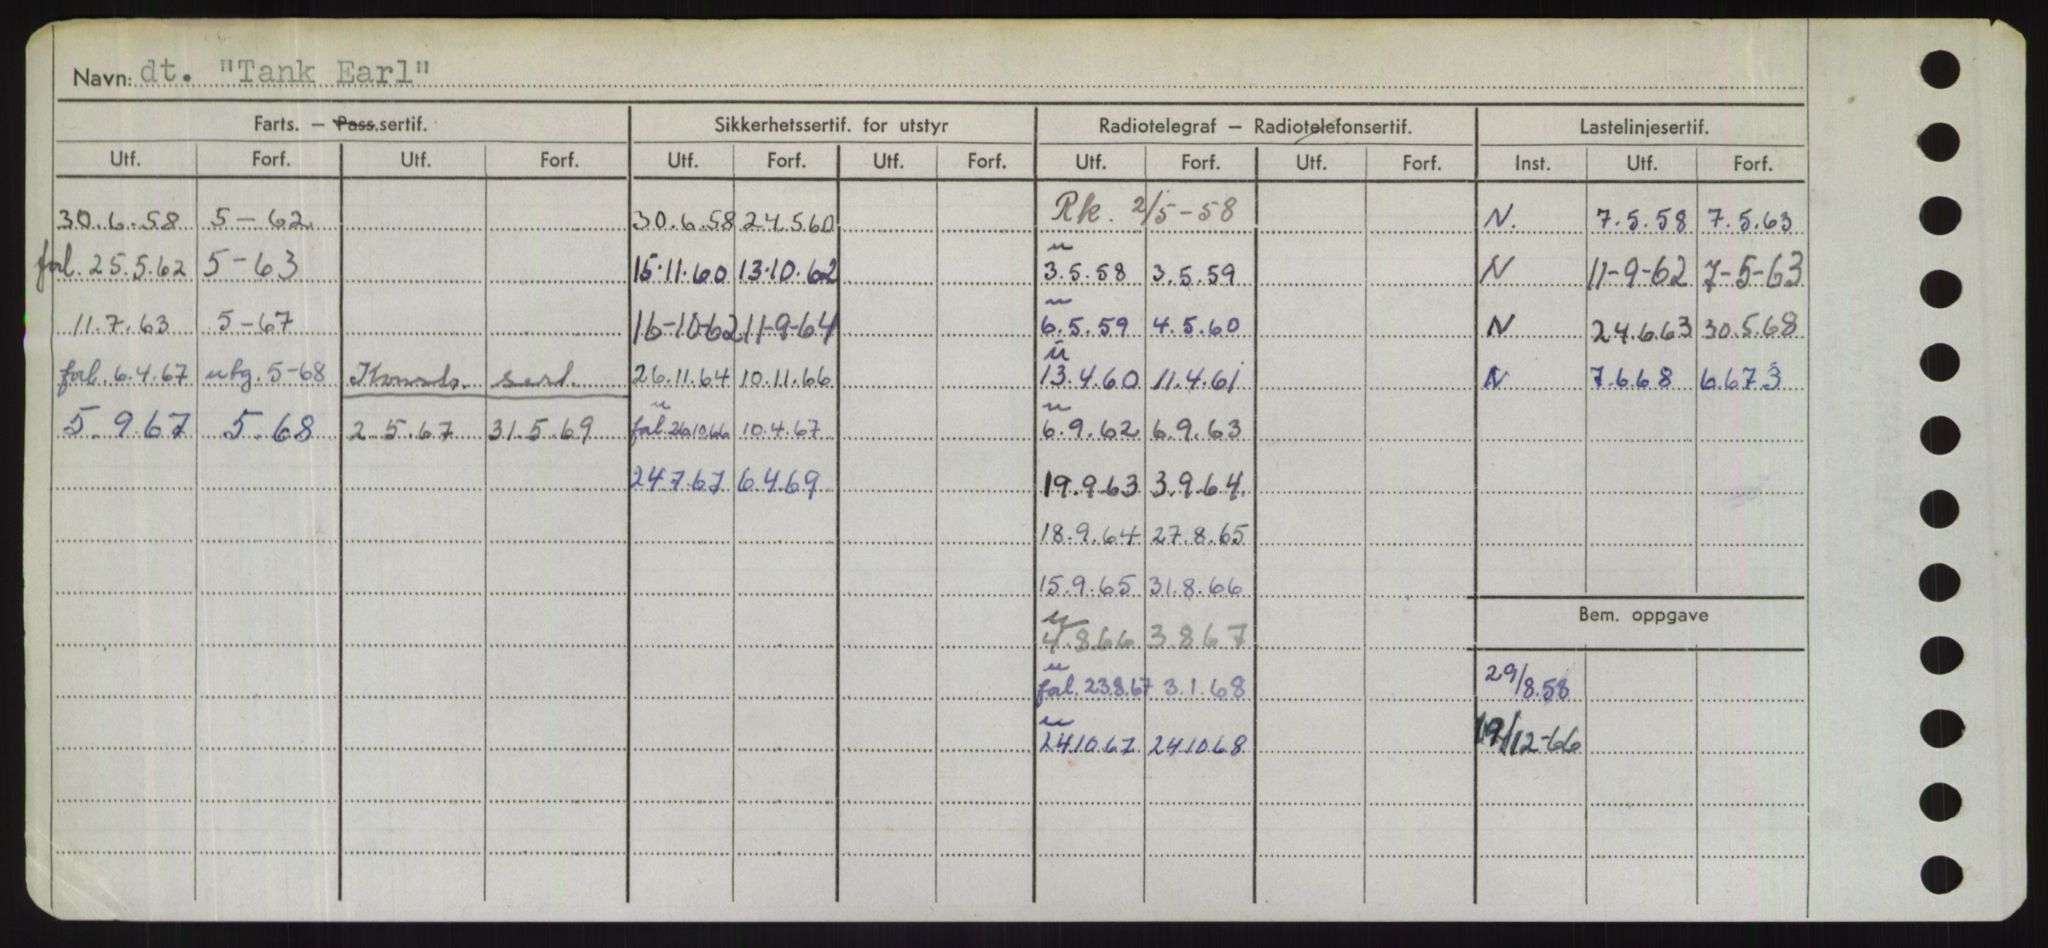 Navn: dt. "Tank Earl"
Farts. — Pass.sertif. Sikkerhetssertif. for utstyr Radiotelegraf — Radiotelefonsertif. Lastelinjesertif.
Utf. Forf. Utf. Forf. Utf. Forf. Utf. Forf. Utf. Forf. Utf. Forf. Inst. Utf. Forf.
30.6.58 5-62 30.6.58 24.5.60 Rk. 2/5-58 N. 7.5.58 7.5.63
forl. 25.5.62 5-63 15.11.60 13.10.62 u 3.5.58 3.5.59 N 11-9-62 7-5-63
11.7.63 5-67 16-10-62 11-9-64 u 6.5.59 4.5.60 N 24.6.63 30.5.68
forl. 6.4.67 utg. 5-68 Konstr. sert. 26.11.64 10.11.66 u 13.4.60 11.4.61 N 7.6.68 6.6.73
5.9.67 5.68 2.5.67 31.5.69 u forl. 26.10.66 10.4.67 u 6.9.62 6.9.63
24.7.67 6.4.69 19.9.63 3.9.64.
18.9.64 27.8.65
15.9.65 31.8.66
Bem. oppgave
u 4.8.66 3.8.67
u forl. 23.8.67 3.1.68 29/8.58
u 24.10.67 24.10.68 19/12-66